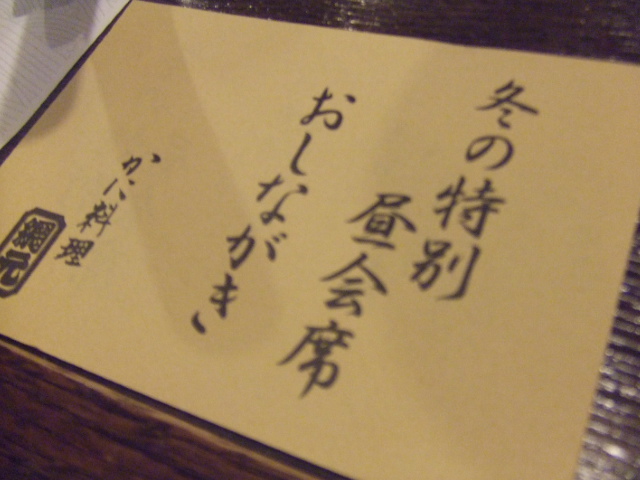 冬の特別
昼会席
おしながき
かに料理
網元